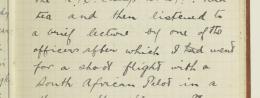 tea and then listened to
a brief lecture by one of the
officers after which I had went
for a short flight with a
South African Pilot in a